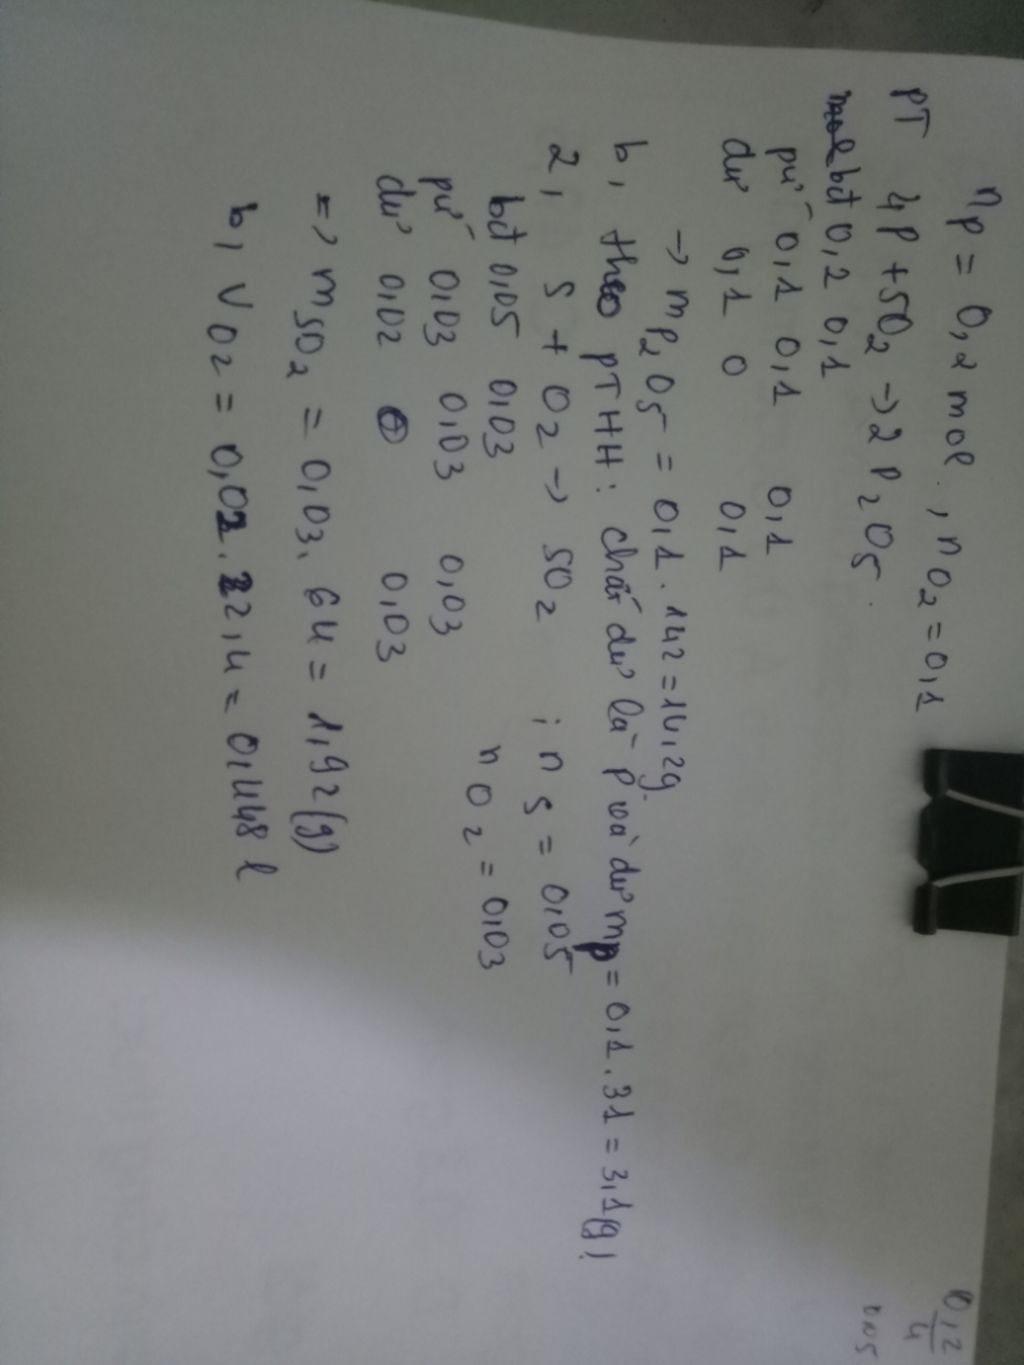 nP = 0,2 mol, nO2 = 0,1
PT 4P + 5O2 → 2P2O5.
bđ 0,2 0,1
pứ 0,1 0,1 0,1
dư 0,1 0 0,1
→ mP2O5 = 0,1.142 = 14,2g.
b, theo PTHH: chất dư là P và dư mP = 0,1.31 = 3,1(g)
2, S + O2 → SO2 ; nS = 0,05
bđ 0,05 0,03 nO2 = 0,03
pứ 0,03 0,03 0,03
dư 0,02 0 0,03
=> mSO2 = 0,03.64 = 1,92(g)
b, VO2 = 0,02.22,4 = 0,448 l
0,2
4
0,05